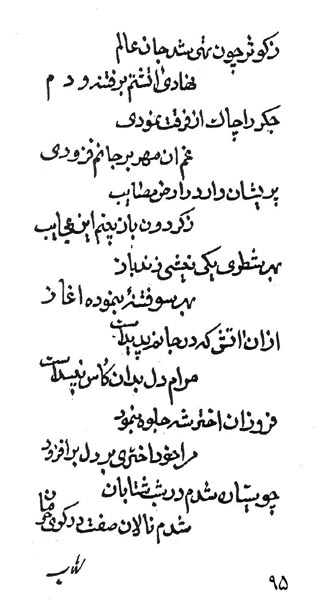 ز کوثر چون تهی شد جان عالم
نهادی آتشم بر فتنه و دم
جگر را چاک از فرقت نمودی
غم آن مهر بر جانم فزودی
پریشان وارد ارض مصایب
ز گردون باز بینم این عجایب
بهر شطری یکی نعشی زند باز
بهر سو فتنهٔ بنموده آغاز
از آن آتش که در جانم پدید است
مرام دل بدان کاس نبید است
فروزان اختر شه جلوه بنمود
مرا خود اختری بر دل برافزود
چو بیتابان شدم در شب شتابان
شدم نالان صفت در کوی خوبان
۹۵